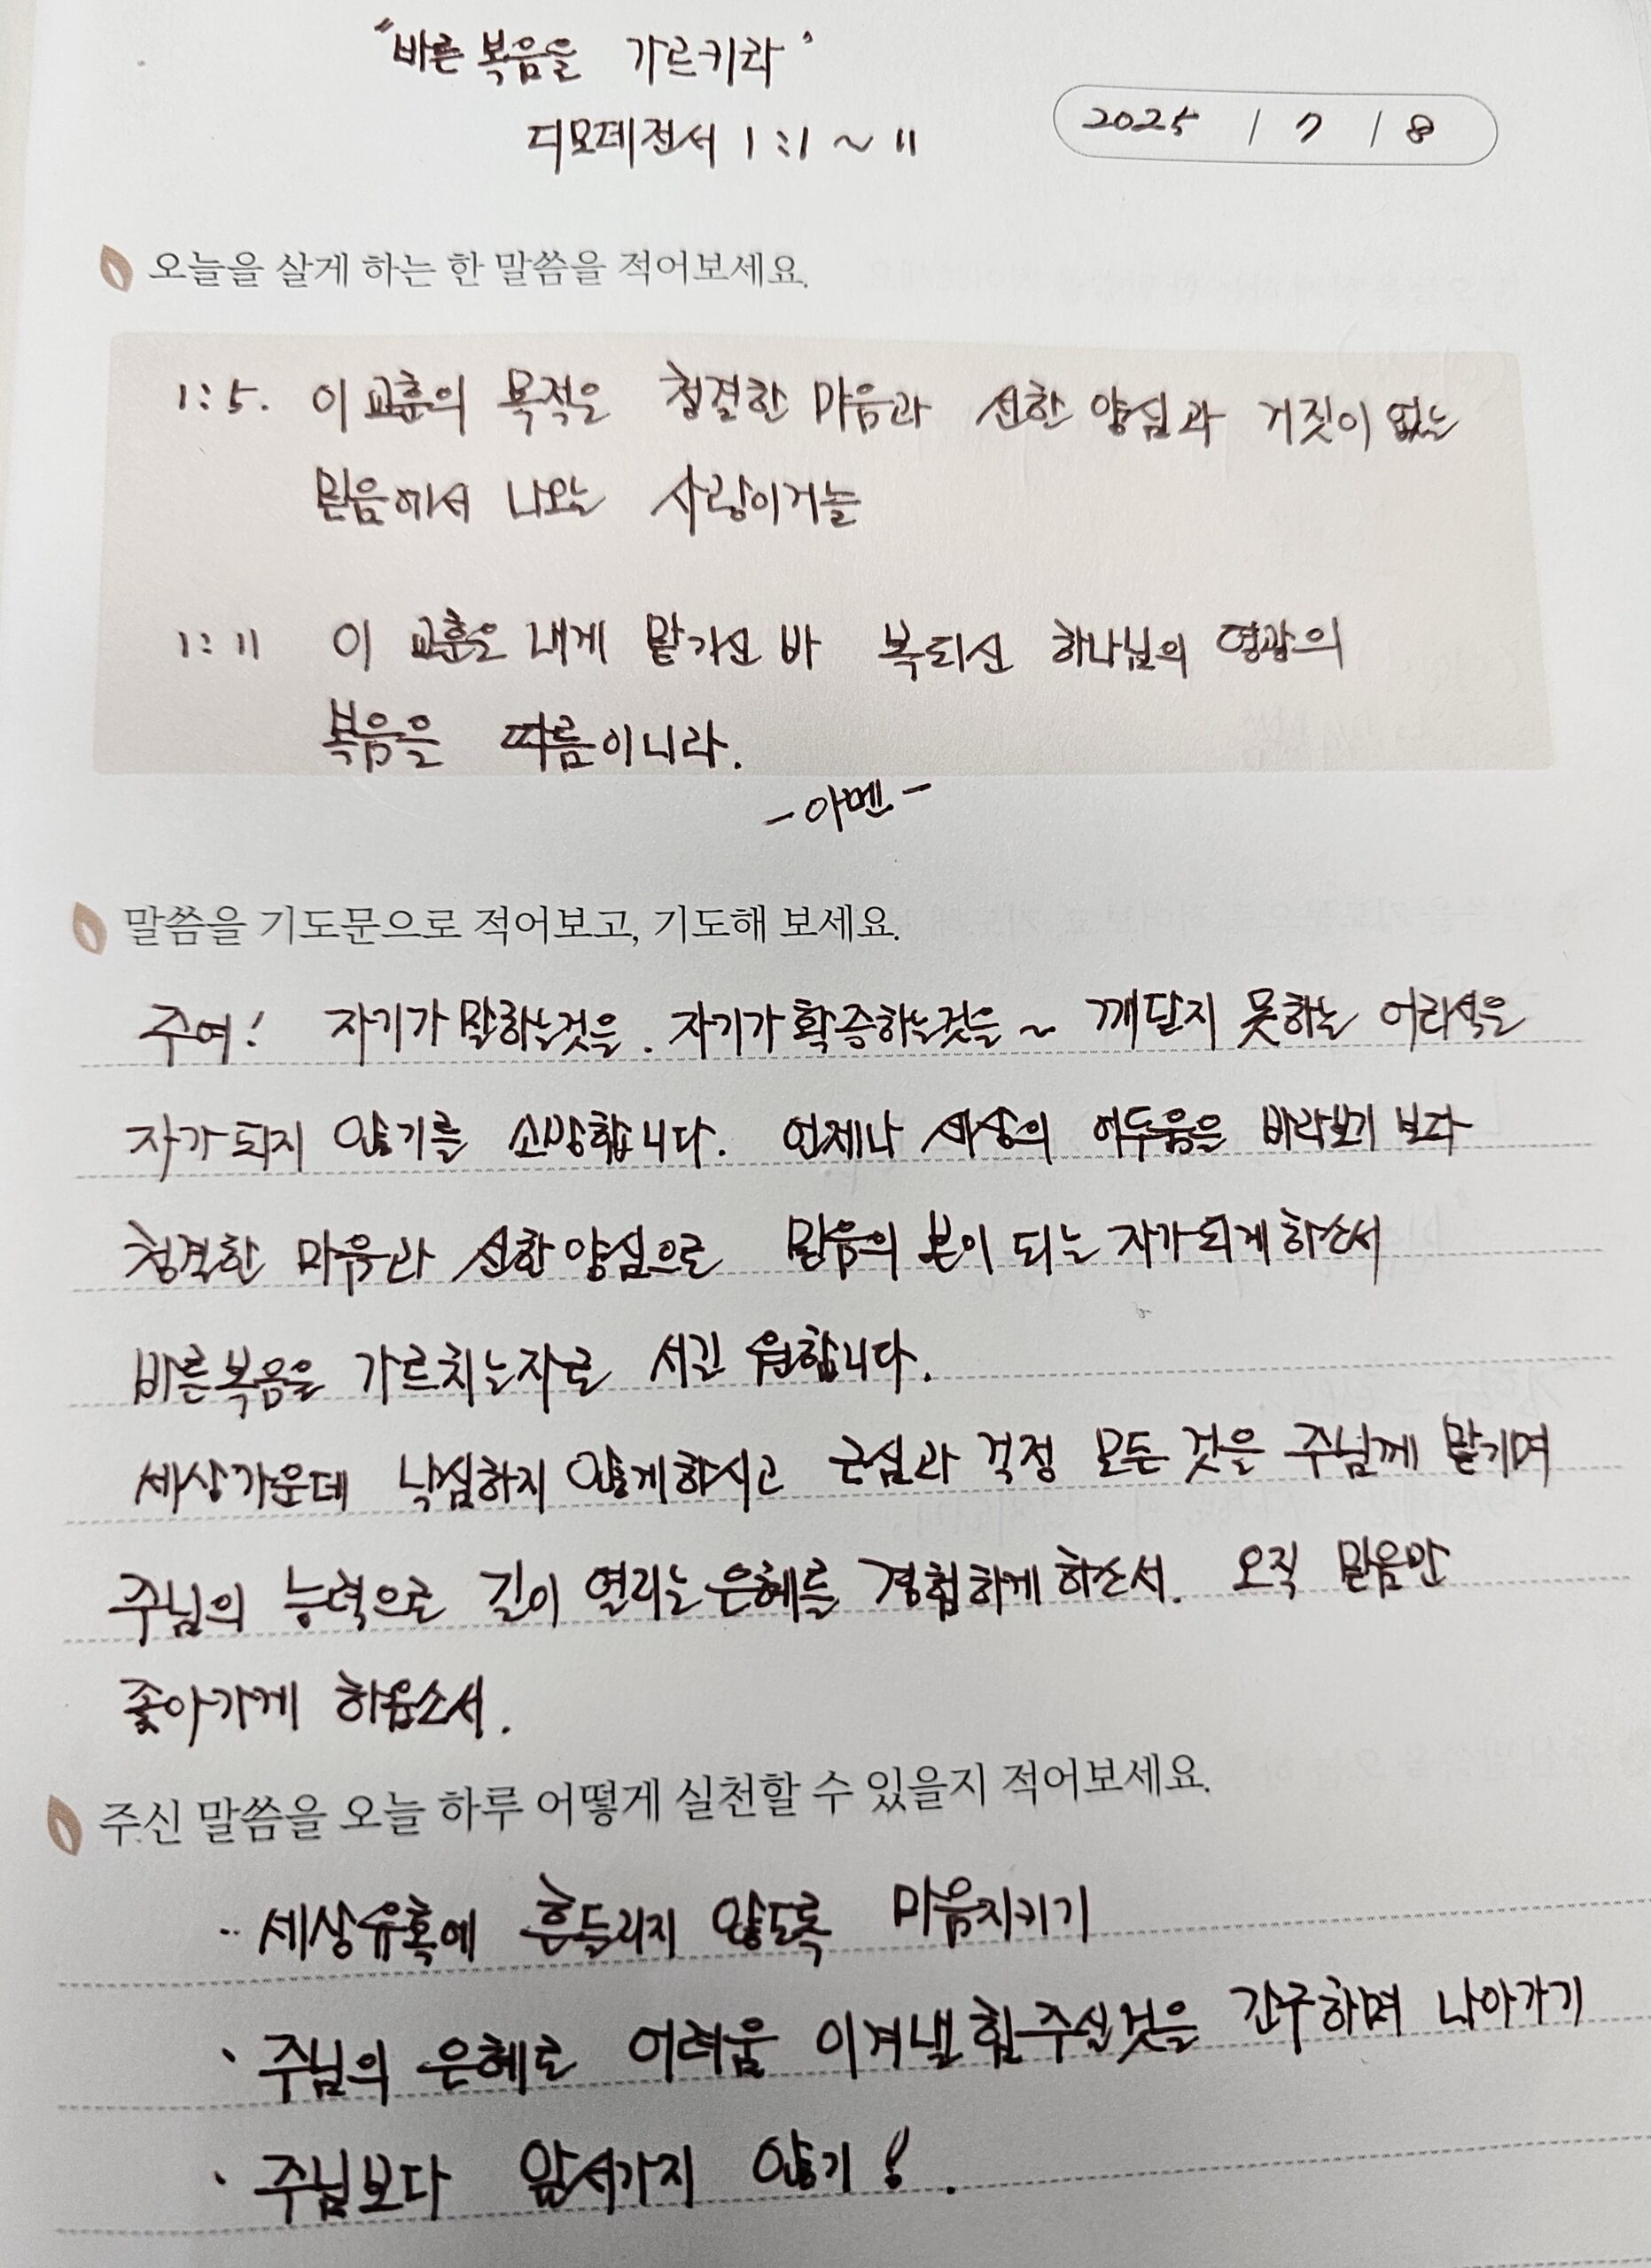 "바른 복음을 가르키라"
디모데전서 1:1 ~ 11
2025 / 7 / 8
오늘을 살게 하는 한 말씀을 적어보세요.
1:5. 이 교훈의 목적은 청결한 마음과 선한 양심과 거짓이 없는
믿음에서 나오는 사랑이거늘
1:11 이 교훈은 내게 맡기신 바 복되신 하나님의 영광의
복음을 따름이니라.
- 아멘 -
말씀을 기도문으로 적어보고, 기도해 보세요.
주여! 자기가 말하는것을. 자기가 확증하는것을 ~ 깨닫지 못하는 어리석은
자가 되지 않기를 소망합니다. 언제나 세상의 어두움을 바라보기 보다
청결한 마음과 선한 양심으로 믿음의 본이 되는 자가 되게 하소서
바른복음을 가르치는자로 서길 원합니다.
세상가운데 낙심하지 않게하시고 근심과 걱정 모든 것을 주님께 맡기며
주님의 능력으로 길이 열리는 은혜를 경험하게 하소서. 오직 믿음만
좇아가게 하옵소서.
주신 말씀을 오늘 하루 어떻게 실천할 수 있을지 적어보세요.
·· 세상유혹에 흔들리지 않도록 마음지키기
· 주님의 은혜로 어려움 이겨낼 힘주실것을 간구하며 나아가기
· 주님보다 앞서가지 않기!.